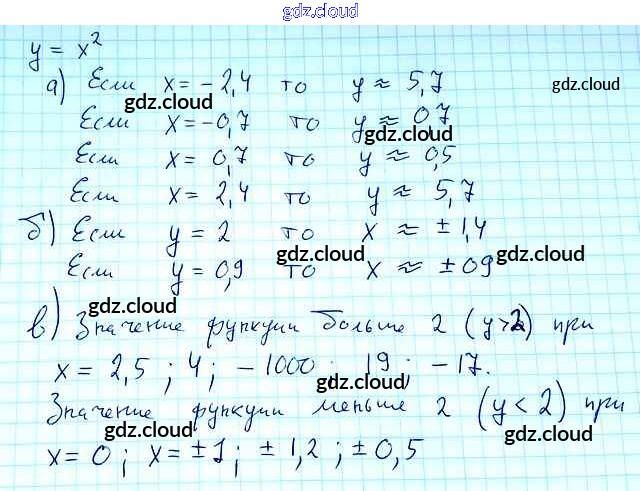 gdz.cloud
y = x²
а) Если x = - 2,4 то y ≈ 5,7
gdz.cloud gdz.cloud
Если x = -0,7 то y ≈ 0,7
gdz.cloud
Если x = 0,7 то y ≈ 0,5
Если x = 2,4 то y ≈ 5,7
б) Если y = 2 то x ≈ ± 1,4
gdz.cloud gdz.cloud gdz.cloud
Если y = 0,9 то x ≈ ± 0,9
gdz.cloud
в) Значение функции больше 2 (y > 2) при
x = 2,5 ; 4 ; - 1000 ; 19 ; - 17.
gdz.cloud
Значение функции меньше 2 (y < 2) при
gdz.cloud gdz.cloud
x = 0 ; x = ± 1 ; ± 1,2 ; ± 0,5